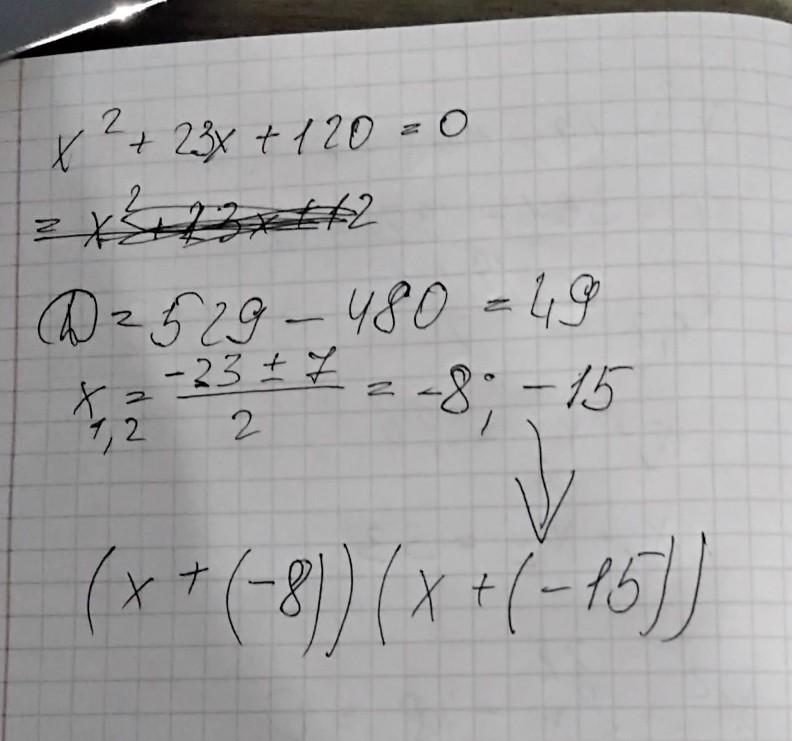 x² + 23x + 120 = 0
= x² + 23x + 12
D = 529 - 480 = 49
x₁,₂ = (-23 ± 7)/2 = -8; -15
(x + (-8))(x + (-15))